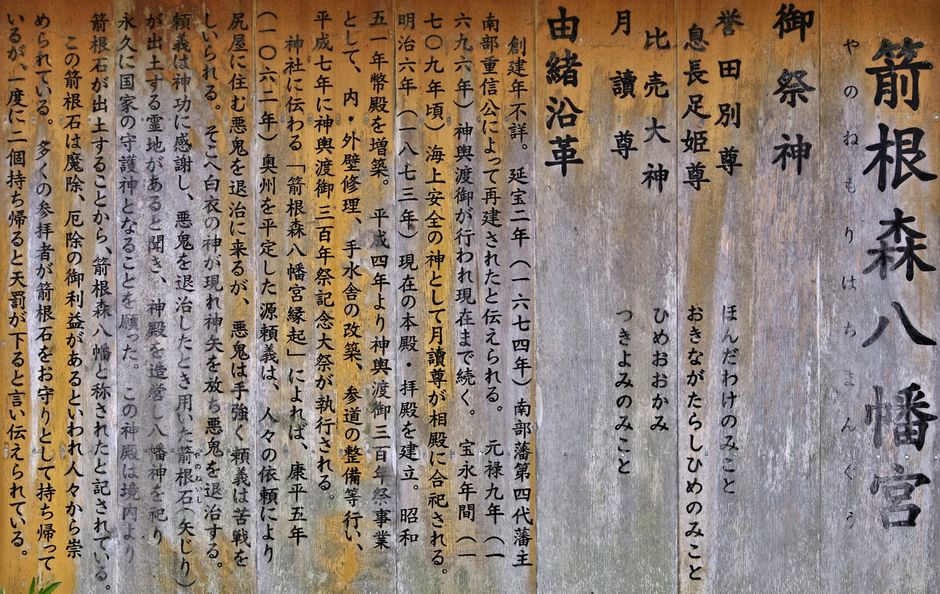 箭根森八幡宮
やのねもりはちまんぐう
御祭神
誉田別尊　ほんだわけのみこと
息長足姫尊　おきながたらしひめのみこと
比売大神　ひめおおかみ
月讀尊　つきよみのみこと
由緒沿革
創建年不詳。延宝二年（一六七四年）南部藩第四代藩主
南部重信公によって再建されたと伝えられる。　元禄九年（一
六九六年）神輿渡御が行われ現在まで続く。　宝永年間（一
七〇九年頃）海上安全の神として月讀尊が相殿に合祀される。
明治六年（一八七三年）現在の本殿・拝殿を建立。　昭和
五一年幣殿を増築。　平成四年より神輿渡御三百年祭事業
として、内・外壁修理、手水舎の改築、参道の整備等行い、
平成七年に神輿渡御三百年祭記念大祭が執行される。
神社に伝わる「箭根森八幡宮縁起」によれば、康平五年
（一〇六二年）奥州を平定した源頼義は、人々の依頼により
尻屋に住む悪鬼を退治に来るが、悪鬼は手強く頼義は苦戦を
しいられる。そこへ白衣の神が現れ神矢を放ち悪鬼を退治する。
頼義は神功に感謝し、悪鬼を退治したとき用いた箭根石（矢じり）
やのねいし
が出土する霊地があると聞き、神殿を造営し八幡神を祀り
永久に国家の守護神となることを願った。この神殿は境内より
箭根石が出土することから、箭根森八幡と称されたと記されている。
この箭根石は魔除、厄除の御利益があるといわれ人々から崇
められている。　多くの参拝者が箭根石をお守りとして持ち帰って
いるが、一度に二個持ち帰ると天罰が下ると言い伝えられている。